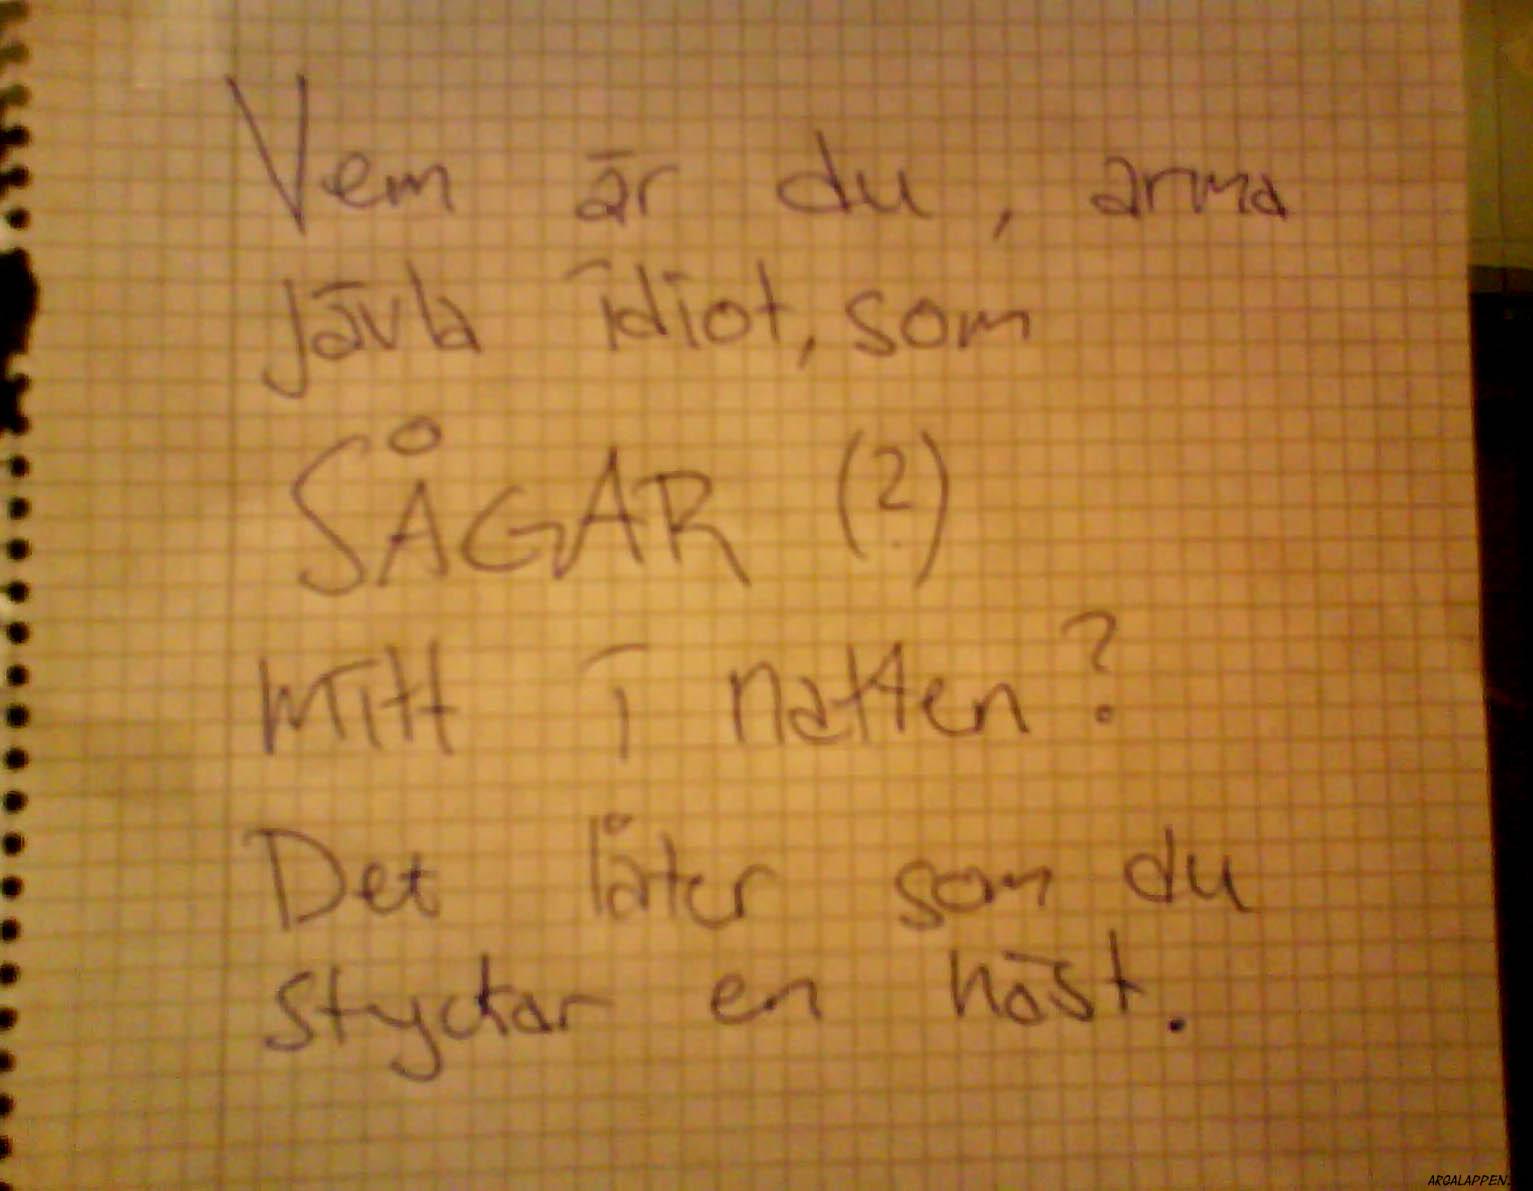 Vem är du, arma
jävla idiot, som
SÅGAR (?)
mitt i natten?
Det låter som du
styckar en häst.
ARGALAPPEN.